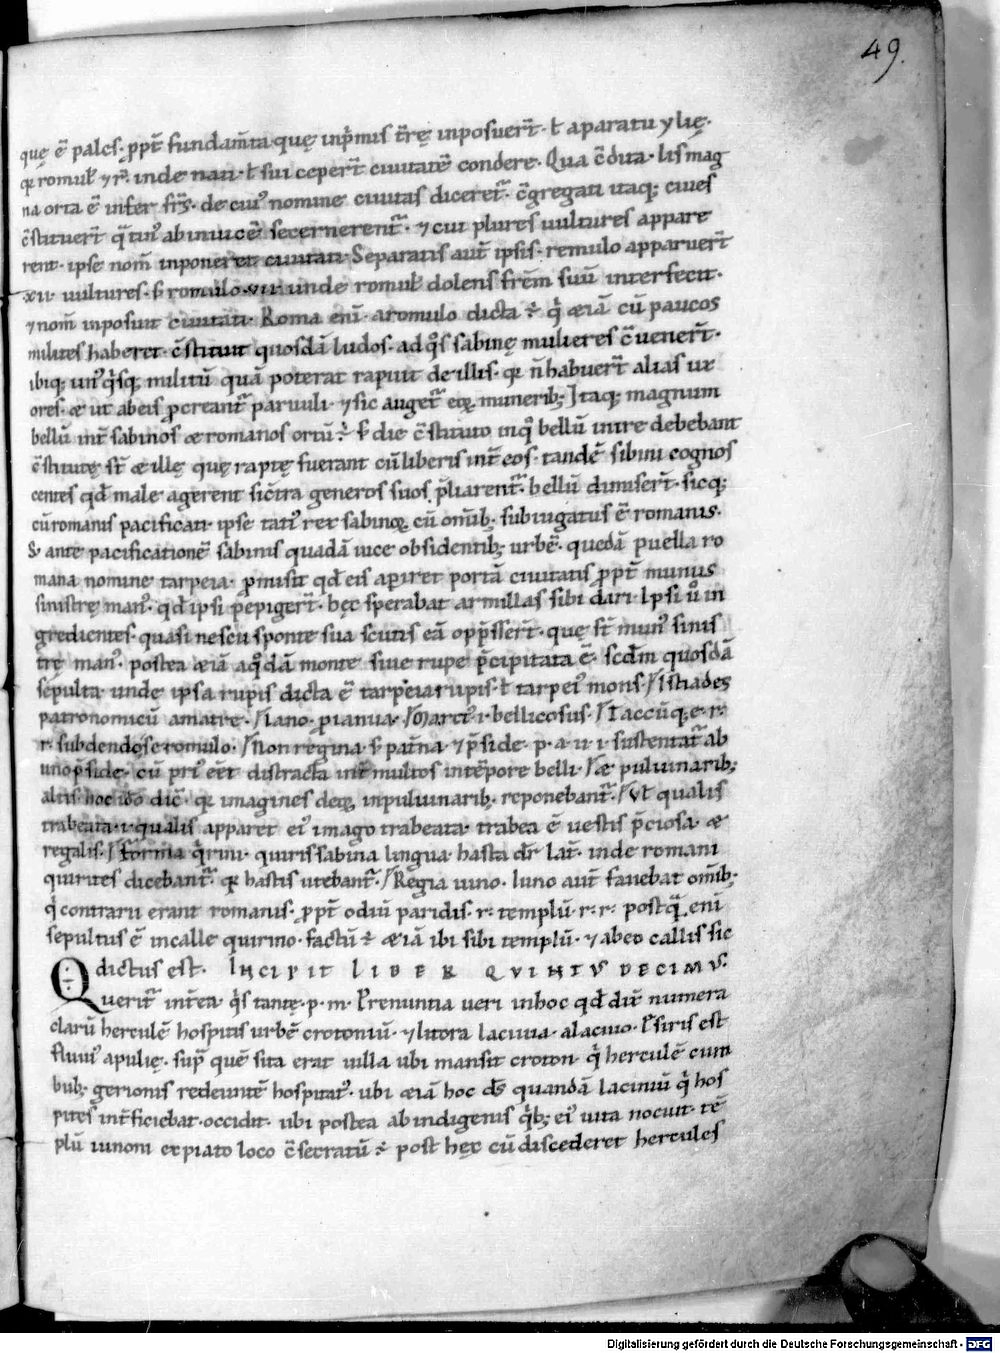 49.
quę ē pales. ꝓpt̄ fundam̄ta quę inp̄mis t̄rę inposuer̄t. ł aparatu ylię.
qꝛ romul᷒ ⁊ r̄. inde nati. ł sui ceper̄t ciuitatē condere. Qua c̄dita. lis mag
na orta ē inter fr̄s. de cui᷒ nomine ciuitas diceret᷑. c̄gregati itaq; ciues
c̄stituer̄t q̄tin᷒ ab inuicē secernerent᷑. ⁊ cui plures uultures appare
rent. ipse nom̄ inponeret ciuitati. Separatis aut̄ ipsis. remulo apparuer̄t
xii. uultures. s; romulo. vii. unde romul᷒ dolens fr̄em suū interfecit.
⁊ nom̄ inposuit ciuitati. Roma eni̅. a romulo dicta ÷. q̇ æiā cū paucos
milites haberet. c̄stituit quosdā ludos. ad q̊s sabinę mulieres c̄uener̄t.
ibiq; un᷒q̇sq; militū quā poterat rapuit de illis. qꝛ n̄ habuer̄t alias ux
ores. æ ut ab eis ꝓcreant᷑ paruuli. ⁊ sic auget᷑ eoꝝ munerib; Itaq; magnum
bellū int̄ sabinos æ romanos ortū ÷. s; die c̄stituto in q̊ bellū inire debebant
c̄stitutę st̄ æ illę quę raptę fuerant cū liberis int̄ eos. tandē sabini cognos
centes qđ male agerent si c̄tra generos suos p̄liarent᷑. bellū dimiser̄t. sicq;
cū romanis pacificati. ipse tati᷒ rex sabinoꝝ cū om̄ib; subiugatus ē romanis.
S; ante pacificationē sabinis quadā uice obsidentib; urbē. quedā puella ro
mana nomine tarpeia. ꝓmisit qđ eis aperiret portā ciuitatis ꝓpt̄ munus
sinistrę man᷒. qđ ipsi pepiger̄t. hęc sperabat armillas sibi dari. Ipsi u̇ in
gredientes. quasi nescii sponte sua scutis eā opp̄sser̄t. quę st̄ mun᷒ sinis
trę man᷒. postea æiā a q̊dā monte siue rupe p̄cipitata ē. scđm quosdā
sepulta. unde ipsa rupis dicta ē tarpeia rupis. ł tarpei᷒ mons. / Istiades
patronomicū a matre. / Iano. ꝓ ianua. / Marci᷒. i. bellicosus. / Iaccūq; e. r.
r. subdendo se romulo. / Non regina. s; pat̄na ⁊ p̄side. p. a. u. i. sustentat᷑ ab
uno p̄side. cū pri᷒ eēt distracta int̄ multos in tēpore belli. / æ puluinarib;
altis. hoc iđo dic̄. qꝛ imagines deoꝝ in puluinarib; reponebant᷑. / Vt qualis
trabeata. i. qualis apparet ei᷒ imago trabeata. trabea ē uestis p̄ciosa. æ
regalis. / Forma q̇rini. quiris sabina lingua. hasta dr̄ lat̄. inde romani
quirites dicebant᷑. qꝛ hastis utebant᷑. / Regia iuno. Iuno aut̄ fauebat om̄ib;
q̇ contrarii erant romanis. ꝓpt̄ odiū paridis. r. templū. r. r. postq̄ eni̅
sepultus ē in calle quirino. factū ÷ æiā ibi sibi templū. ⁊ ab eo callis sic
dictus est. INCIPIT LIBER QVINTVSDECIMVS.
Querit᷑ int̄ea. q̇s tantę. p. m. Prenuntia ueri. in hoc qđ dic̄ numera
clarū herculē hospitis urbē crotoniū. ⁊ litora lacinia. a lacino. Esiris est
fluui᷒ apulię. sup̄ quē sita erat uilla ubi mansit croton. q̇ herculē cum
bub; gerionis redeuntē hospitat᷒. ubi æiā hoc đs quandā laciniū q̇ hos
pites int̄ficiebat. occidit. ubi postea ab indigenis q̇b; ei᷒ uita nocuit. tē
plū iunoni expiato loco c̄secratū ÷. post hęc cū discederet hercules
Digitalisierung gefördert durch die Deutsche Forschungsgemeinschaft - DFG